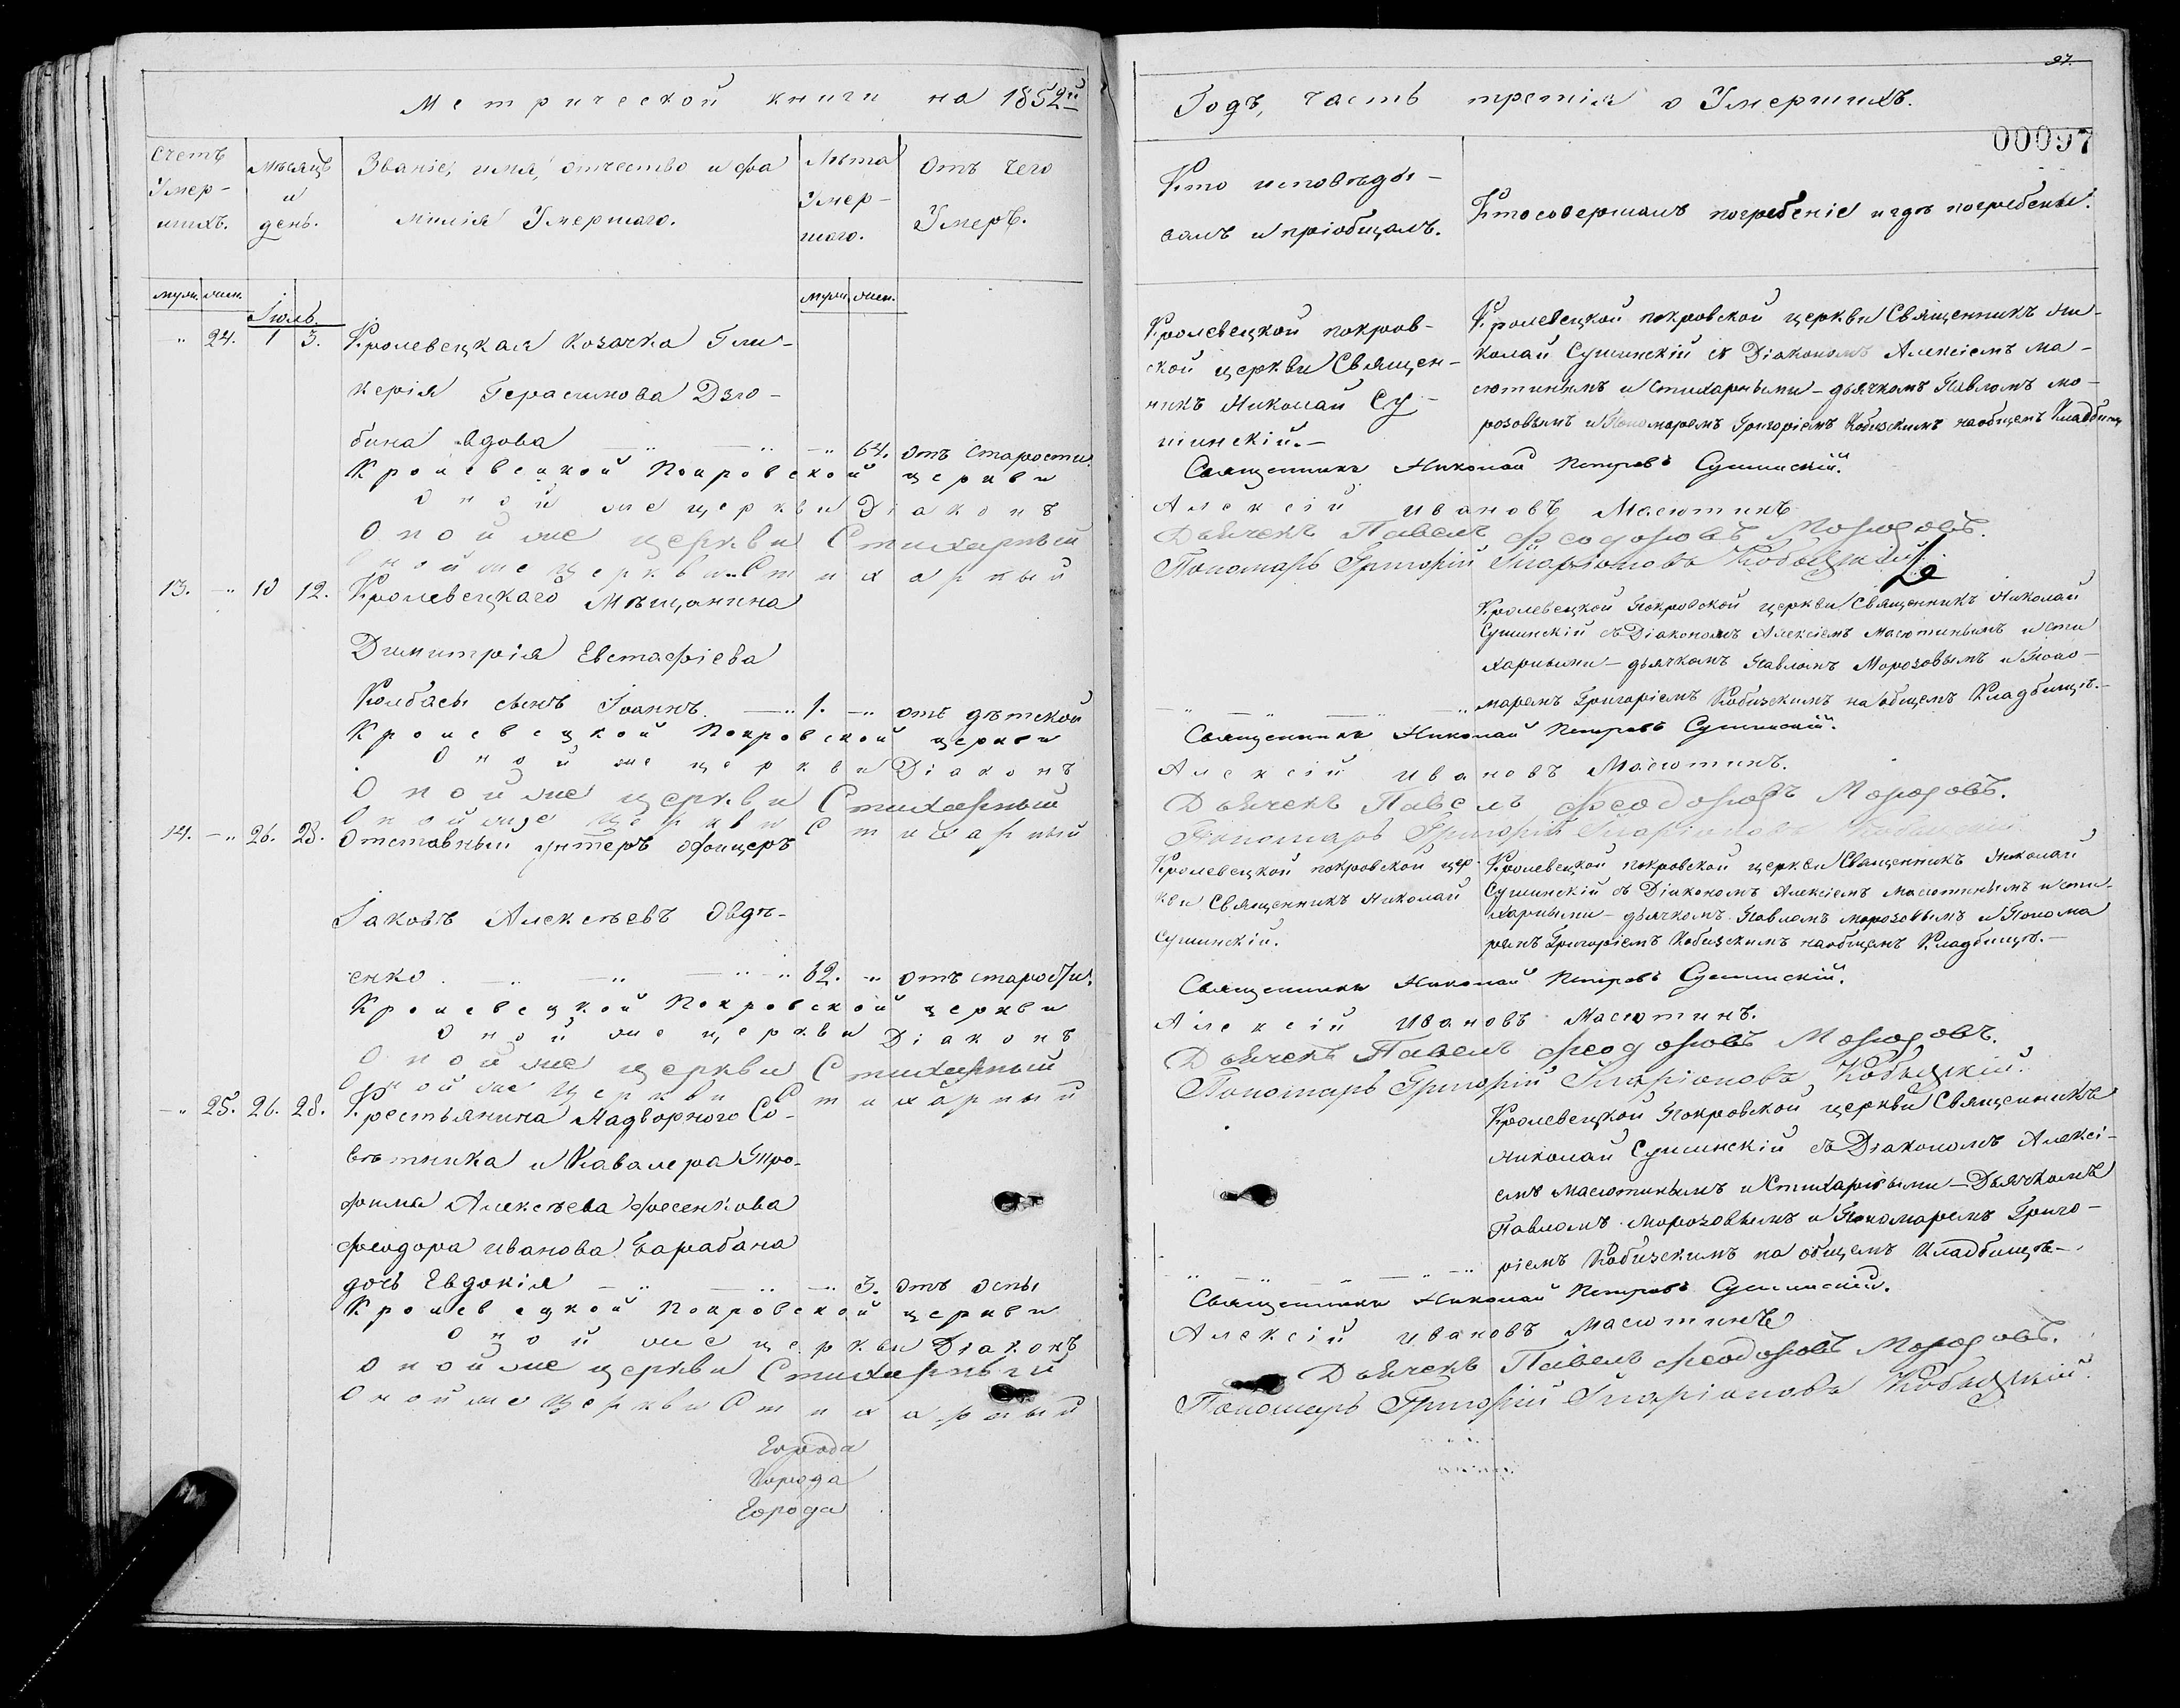 Метрической книги на 1852й
Счетъ Умер-шихъ.
Мѣсяцъ и день.
Званіе, имя, отчество и фа
милія Умершаго.
Лѣта Умер-шаго.
Отъ чего Умеръ.
муж. жен.
муж. жен.
Іюль.
" 24. 1 3. Кролевецкая Козачка Гли-
керія Герасимова Дзю-
бина вдова 64. отъ старости.
Кролевецкой Покровской церкви
Оной же церкви Діаконъ
Оной же церкви Стихарный
Оной же церкви Стихарный
13. " 10 12. Кролевецкаго Мѣщанина
Димитрія Евстафіева
Колбасы сынъ Іоаннъ. 1. " отъ дѣтской
Кролевецкой Покровской церкви
Оной же церкви Діаконъ
Оной же церкви Стихарный
Оной же церкви Стихарный
14. " 26. 28. Отставный унтеръ офицеръ
Іаковъ Алексѣевъ Овдѣ-
енко. 62. " отъ старости.
Кролевецкой Покровской церкви
Оной же церкви Діаконъ
Оной же церкви Стихарный
Оной же церкви Стихарный
" 25. 26. 28. Крестьянина Надворного Со-
вѣтника и Кавалера Тро-
фима Алексѣева Фесенкова
Феодора Иванова Барабана
дочь Евдокія 3. отъ оспы
Кролевецкой Покровской церкви
Оной же церкви Діаконъ
Оной же церкви Стихарный
Оной же церкви Стихарный
Города
Города
Города
97.
Годъ, часть третія о Умершихъ.
00097
Кто исповѣды-
валъ и пріобщалъ.
Кто совершалъ погребеніе и гдѣ погребены.
Кролевецкой покров-
ской церкви Священ-
никъ Николай Су-
шинскій.-
Кролевецкой покровской церкви Священникъ Ни-
колай Сушинскій съ Діакономъ Алексіемъ Ма-
сютинымъ и Стихарными - дьячкомъ Павломъ Мо-
розовымъ и Пономаремъ Григоріемъ Кобизскимъ на общемъ Кладбищ
Священникъ Николай Петровъ Сушинскій.
Алексій Ивановъ Масютинъ
Дьячекъ Павелъ Феодоровъ Морозовъ.
Пономарь Григорій Иларіоновъ Кобызскій.
Кролевецкой Покровской церкви Священникъ Николай
Сушинскій съ Діакономъ Алексіемъ Масютинымъ и сти
харными - дьячкомъ Павломъ Морозовымъ и Поно-
маремъ Григоріемъ Кобизскимъ на общемъ Кладбищѣ.-
Священникъ Николай Петровъ Сушинскій.
Алексій Ивановъ Масютинъ.
Дьячекъ Павелъ Феодоровъ Морозовъ.
Пономарь Григорій Иларіоновъ Кобызскій
Кролевецкой покровской цер-
кви Священникъ Николай
Сушинскій.
Кролевецкой покровской церкви Священникъ Николай
Сушинскій съ Діакономъ Алексіемъ Масютинымъ и сти-
харными - дьячкомъ Павломъ Морозовымъ и Понома
ремъ Григоріемъ Кобизскимъ на общемъ Кладбищѣ.-
Священникъ Николай Петровъ Сушинскій.
Алексій Ивановъ Масютинъ.
Дьячекъ Павелъ Феодоровъ Морозовъ.
Пономарь Григорій Иларіоновъ Кобызскій.
Кролевецкой Покровской церкви Священникъ
Николай Сушинскій съ Діакономъ Алексі-
емъ Масютинымъ и Стихарными - Дьячкомъ
Павломъ Морозовымъ и Пономаремъ Григо-
ріемъ Кобизскимъ на общемъ Кладбищѣ-.
Священникъ Николай Петровъ Сушинскій.
Алексій Ивановъ Масютинъ
Дьячекъ Павелъ Феодоровъ Морозовъ.
Пономарь Григорій Иларіоновъ Кобызскій.